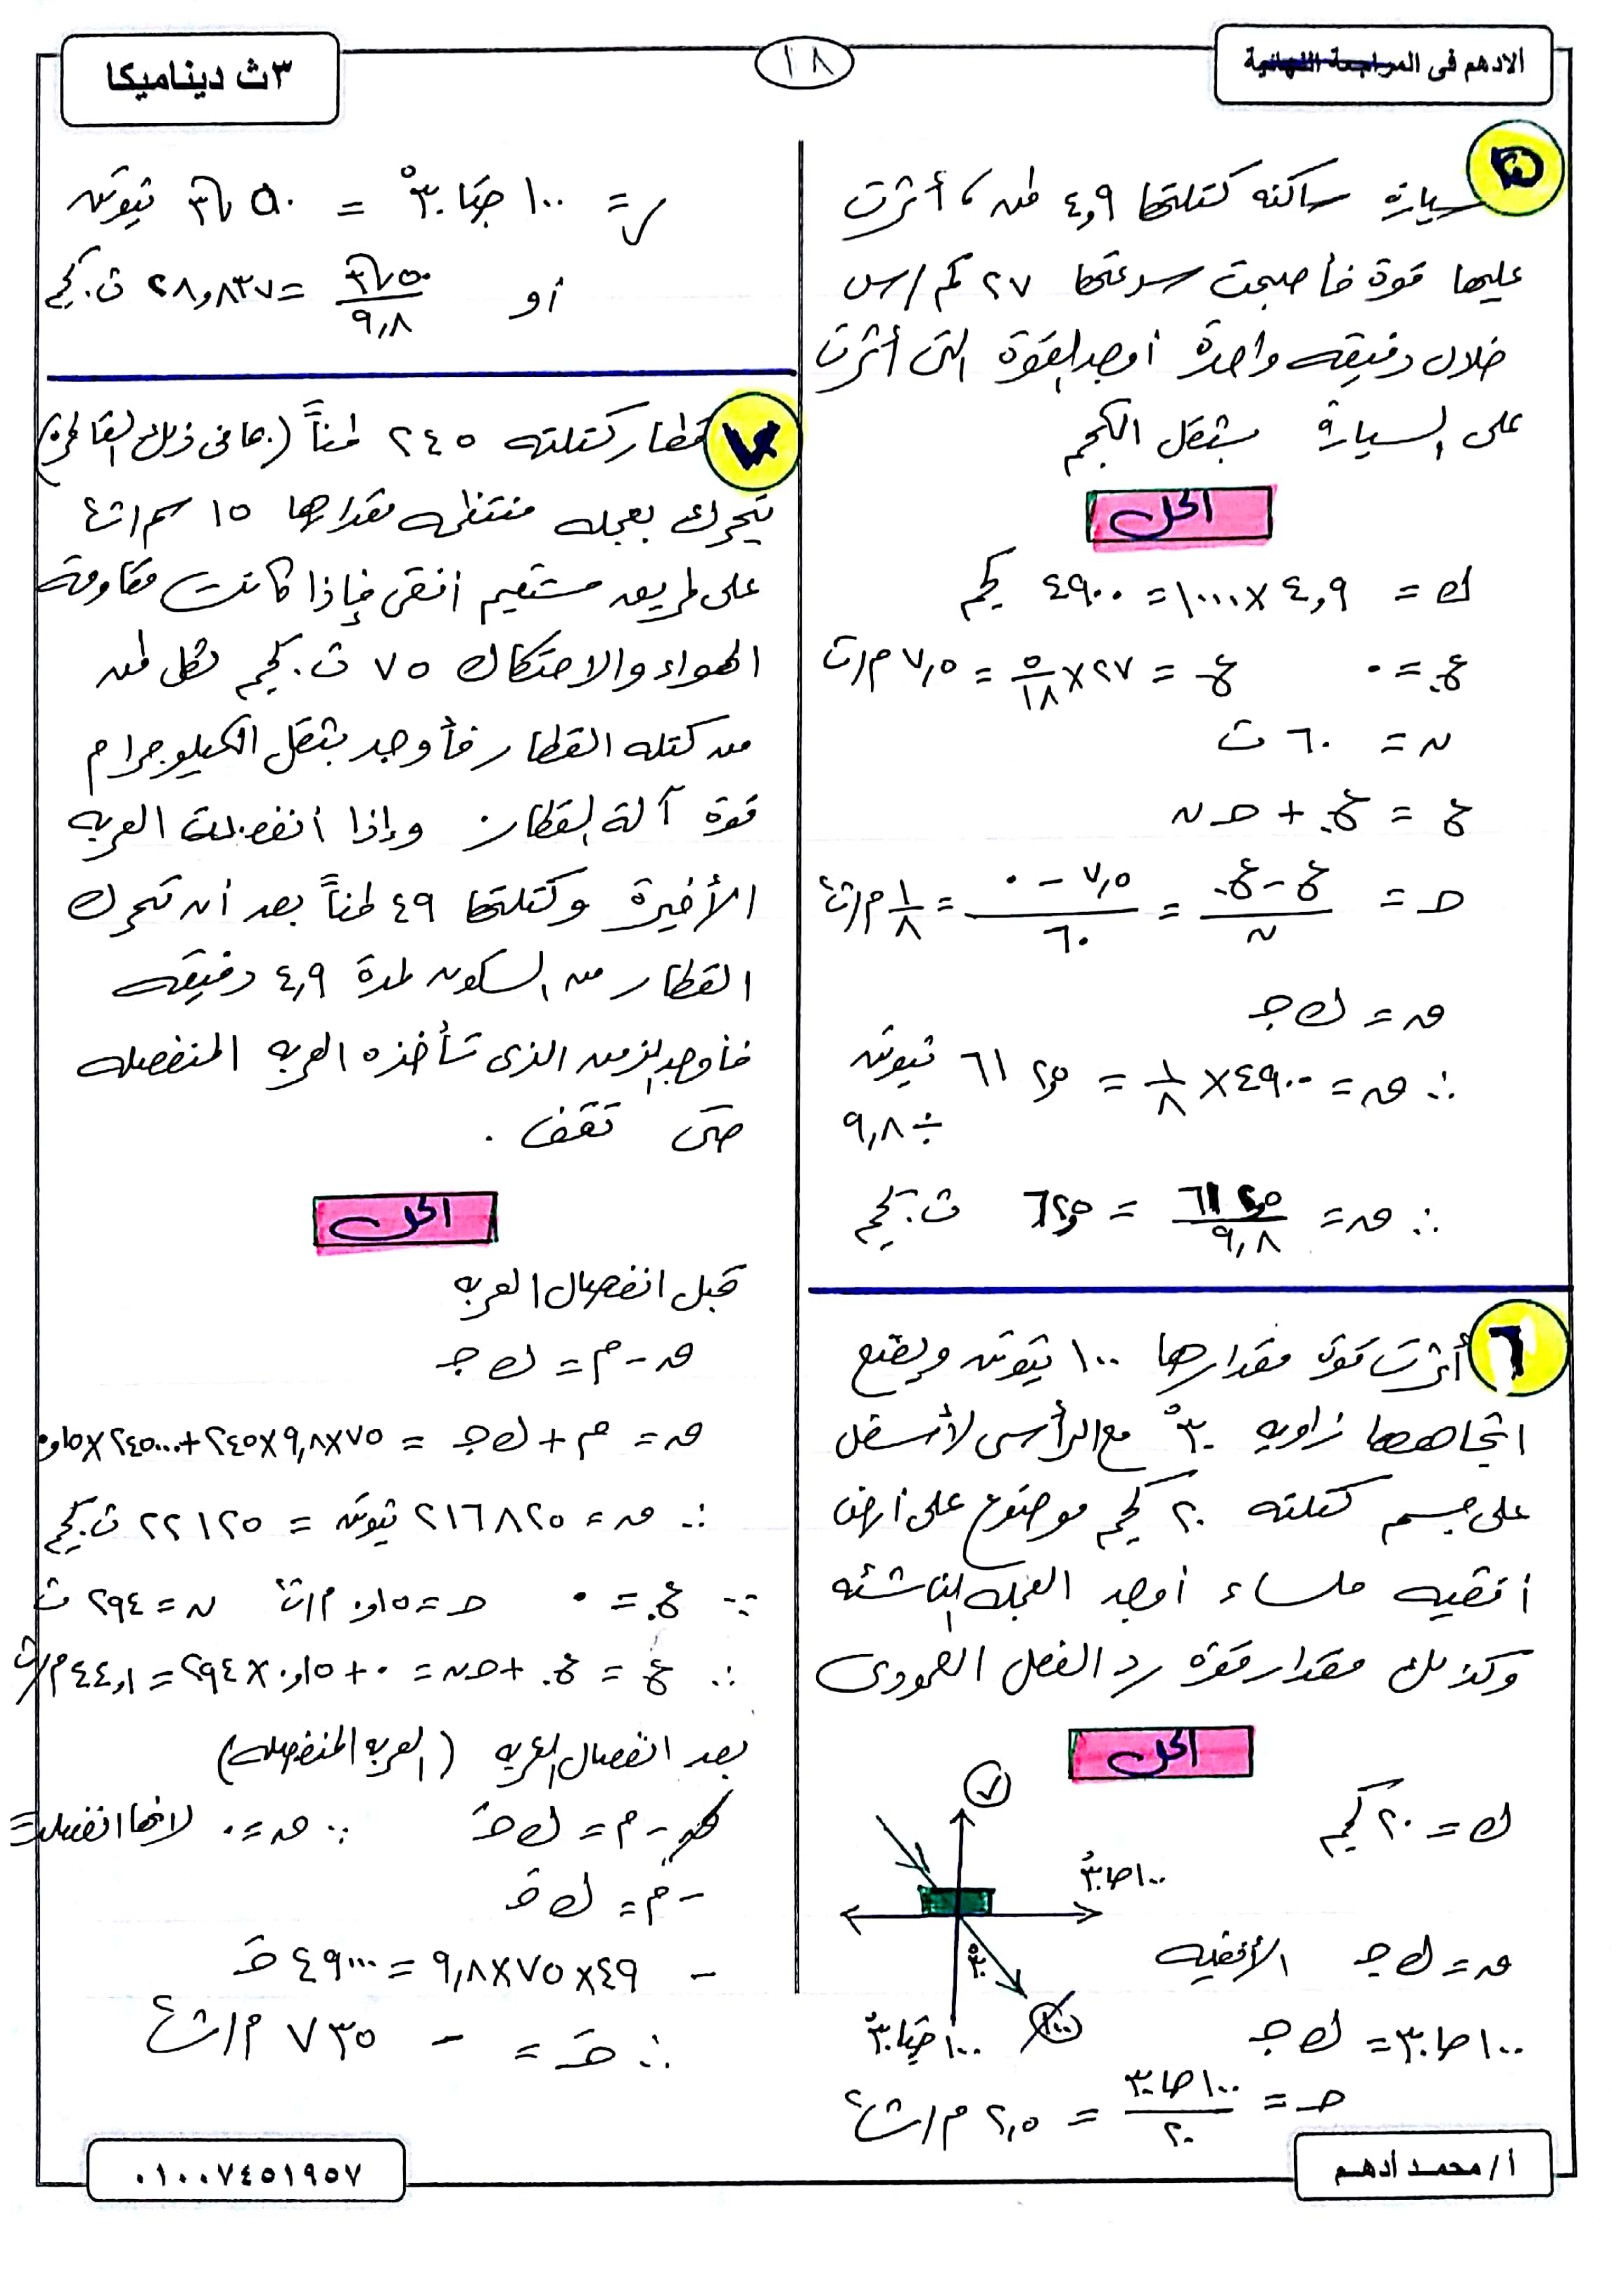 الادهم فى المراجعة النهائية
١٨
٣ث ديناميكا
٥
سيارة ساكنه كتلتها ٤,٩ طن ، أثرت
عليها قوة فأصبحت سرعتها ٢٧ كم/س
خلال دقيقه واحدة أوجد القوة التى أثرت
على السيارة بثقل الكجم
الحل
ك = ٤,٩ × ١٠٠٠ = ٤٩٠٠ كجم
ع. = ٠ ع = ٢٧ × ٥/١٨ = ٧,٥ م/ث
ن = ٦٠ ث
ع = ع. + حـ ن
حـ = (ع - ع.)/ن = (٧,٥ - ٠)/٦٠ = ١/٨ م/ث٢
ق = ك جـ
∴ ق = ٤٩٠٠ × ١/٨ = ٦١٢,٥ نيوتن
÷ ٩,٨
∴ ق = ٦١٢,٥/٩,٨ = ٦٢,٥ ث.كجم
٦
أثرت قوة مقدارها ١٠٠ نيوتن ويصنع
اتجاهها زاويه ٣٠° مع الرأسى لأسفل
على جسم كتلته ٢٠ كجم موضوع على أرض
افقيه ملساء أوجد العجله الناشئه
وكذلك مقدار قوة رد الفعل العمودى
الحل
ك = ٢٠ كجم
ر
١٠٠ حا ٣٠°
٣٠°
١٠٠
١٠٠ حتا ٣٠°
ق = ك جـ الأفقيه
١٠٠ حا ٣٠ = ك جـ
حـ = ١٠٠ حا ٣٠/٢٠ = ٢,٥ م/ث٢
ر = ١٠٠ حتا ٣٠° = ٥٠√٣ نيوتن
أو ٥٠√٣/٩,٨ = ٢٨,٨٣٧ ث.كجم
٧
قطار كتلته ٢٤٥ طناً (بما فى ذلك القاطرة)
يتحرك بعجله منتظمه مقدارها ١٥ سم/ث٢
على طريق مستقيم افقى فإذا كانت مقاومة
الهواء والاحتكاك ٧٥ ث.كجم لكل طن
من كتله القطار فأوجد بثقل الكيلوجرام
قوة آلة القطار وإذا انفصلت العربه
الأخيرة وكتلتها ٤٩ طناً بعد أن تحرك
القطار من السكون لمدة ٤,٩ دقيقه
فأوجد الزمن الذى تأخذه العربه المنفصله
حتى تقف .
الحل
قبل انفصال العربه
ق - م = ك جـ
ق = م + ك جـ = ٧٥×٩,٨×٢٤٥ + ٢٤٥٠٠٠×٠,١٥
∴ ق = ٢١٦٨٢٥ نيوتن = ٢٢١٢٥ ث.كجم
∵ ع. = ٠ حـ = ٠,١٥ م/ث٢ ن = ٢٩٤ ث
∴ ع = ع. + حـ ن = ٠ + ٠,١٥ × ٢٩٤ = ٤٤,١ م/ث
بعد انفصال العربه (العربه المنفصله)
ق - م = ك حـَ ∵ ق = ٠ لانها انفصلت
- م = ك حـَ
- ٤٩ × ٧٥ × ٩,٨ = ٤٩٠٠٠ حـَ
∴ حـَ = - ٧٣٥ م/ث٢
أ/ محمد أدهم
٠١٠٠٧٤٥١٩٥٧